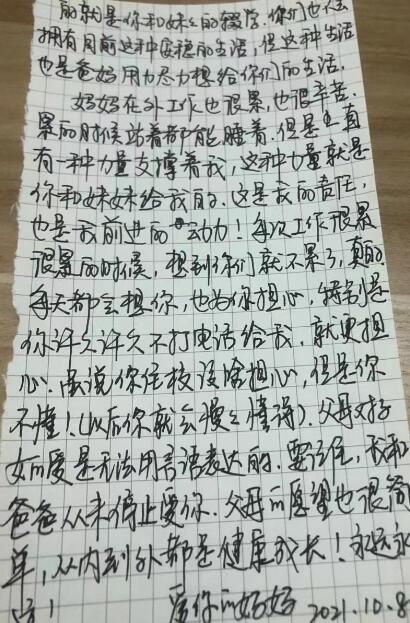 的就是你和妹妹的辍学。你们也不会
拥有目前这种安稳的生活，但这种生活
也是爸妈用力尽力想给你们的生活。
妈妈在外工作也很累，也很辛苦。
累的时候站着都能睡着。但是一直
有一种力量支撑着我，这种力量就是
你和妹妹给我的。这是我的责任，
也是我前进的动力！每次工作很累
很累的时候，想到你们就不累了，真的
每天都会想你，也为你担心，特别是
你许久许久不打电话给我，就更担
心。虽说你住校没啥担心，但是你
不懂！(以后你就会慢慢懂得)。父母对孩
子的爱是无法用言语表达的。要记住，我和
爸爸从未停止爱你。父母的愿望也很简
单，从内到外都是健康成长！永远永
远！
爱你的妈妈 2021.10.8